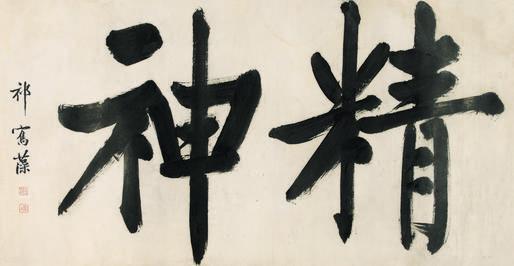 精神
祁寯藻